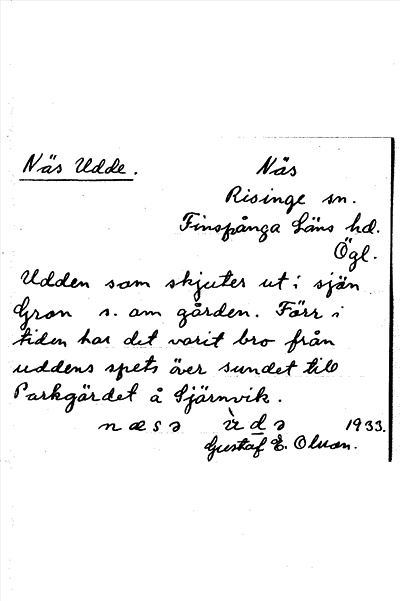 Näs Udde. Näs
Risinge sn.
Finspånga Läns hd.
Ögl.
Udden som skjuter ut i sjön
Gron s. om gården. Förr i
tiden har det varit bro från
uddens spets över sundet till
Parkgärdet å Sjärnvik.
næsə ùdə 1933.
Gustaf E. Olsson.